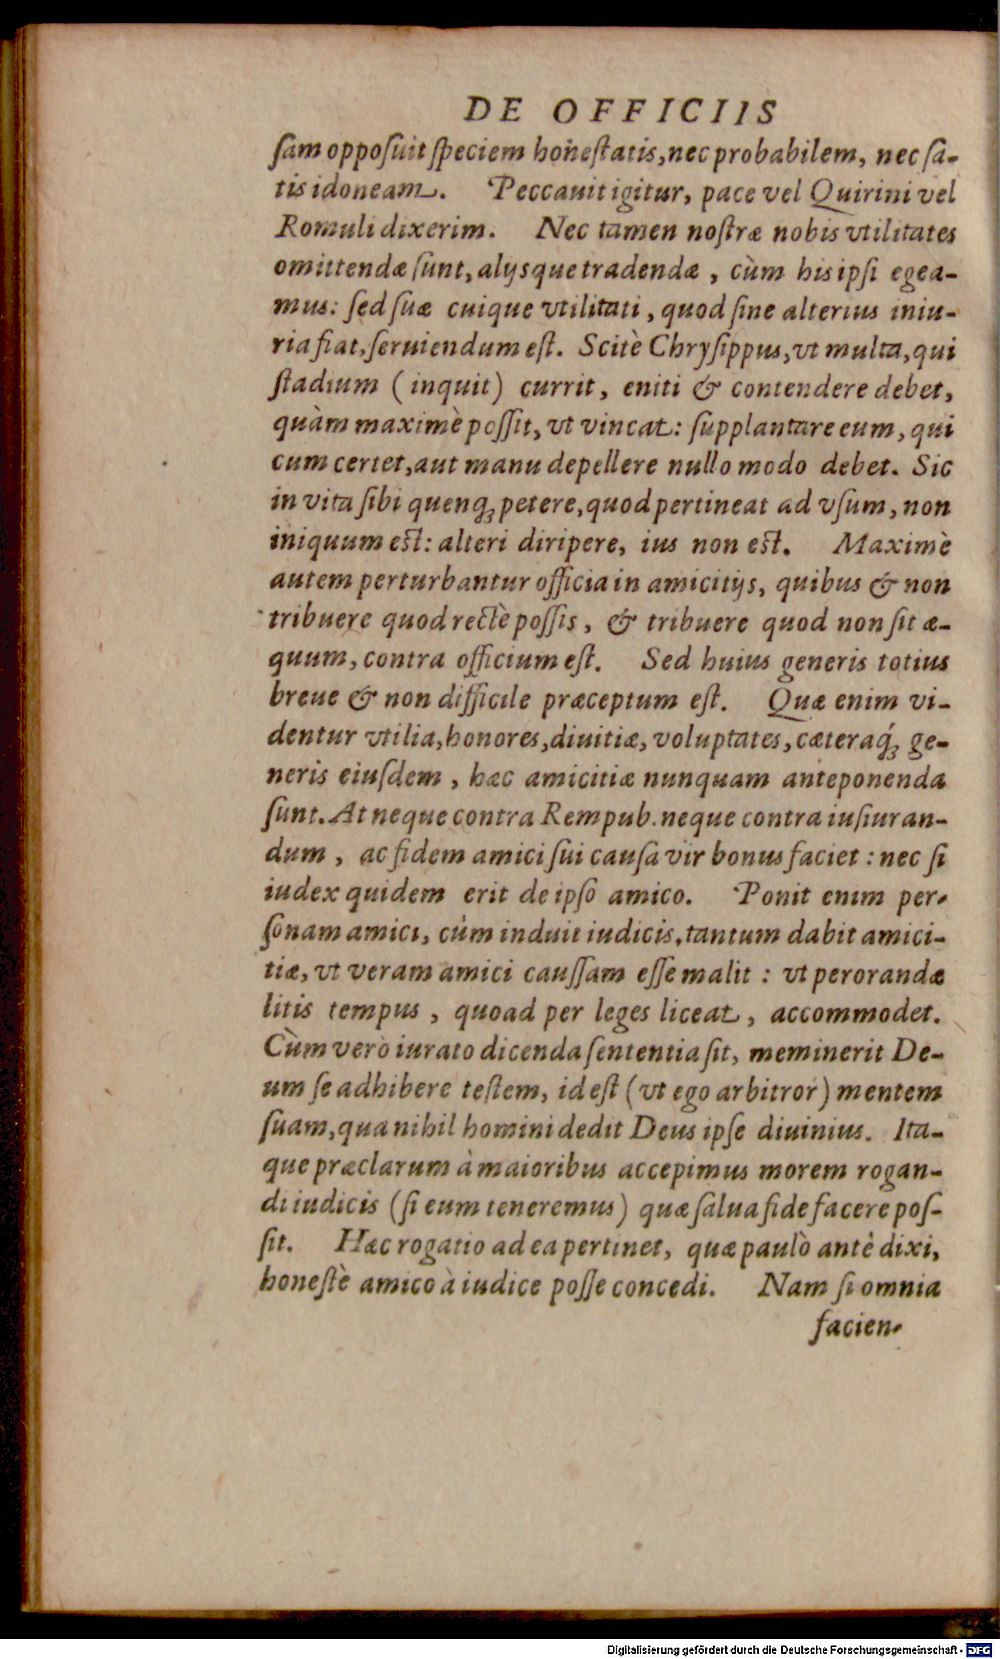 DE OFFICIIS
ſam oppoſuit ſpeciem honeſtatis, nec probabilem, nec ſa-
tis idoneam. Peccauit igitur, pace vel Quirini vel
Romuli dixerim. Nec tamen noſtræ nobis vtilitates
omittendæ ſunt, alijsque tradendæ, cùm his ipſi egea-
mus: ſed ſuæ cuique vtilitati, quod ſine alterius iniu-
ria fiat, ſeruiendum eſt. Scitè Chryſippus, vt multa, qui
ſtadium (inquit) currit, eniti & contendere debet,
quàm maximè poſſit, vt vincat: ſupplantare eum, qui
cum certet, aut manu depellere nullo modo debet. Sic
in vita ſibi quenq; petere, quod pertineat ad vſum, non
iniquum eſt: alteri diripere, ius non eſt. Maximè
autem perturbantur officia in amicitijs, quibus & non
tribuere quod rectè poſſis, & tribuere quod non ſit æ-
quum, contra officium eſt. Sed huius generis totius
breue & non difficile præceptum eſt. Quæ enim vi-
dentur vtilia, honores, diuitiæ, voluptates, cæteraq́; ge-
neris eiuſdem, hæc amicitiæ nunquam anteponenda
ſunt. At neque contra Rempub. neque contra iuſiuran-
dum, ac fidem amici ſui cauſa vir bonus faciet: nec ſi
iudex quidem erit de ipſo amico. Ponit enim per-
ſonam amici, cùm induit iudicis, tantum dabit amici-
tiæ, vt veram amici cauſſam eſſe malit: vt perorandæ
litis tempus, quoad per leges liceat, accommodet.
Cùm verò iurato dicenda ſententia ſit, meminerit De-
um ſe adhibere teſtem, id eſt (vt ego arbitror) mentem
ſuam, qua nihil homini dedit Deus ipſe diuinius. Ita-
que præclarum à maioribus accepimus morem rogan-
di iudicis (ſi eum teneremus) quæ ſalua fide facere poſ-
ſit. Hæc rogatio ad ea pertinet, quæ paulò antè dixi,
honeſtè amico à iudice poſſe concedi. Nam ſi omnia
facien-
Digitalisierung gefördert durch die Deutsche Forschungsgemeinschaft - DFG